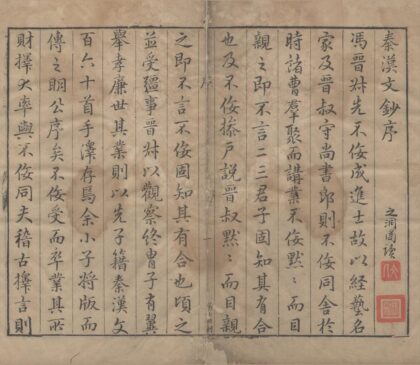 秦漢文鈔序
馮晉叔先不佞成進士故以經藝名
家及晉叔守尚書郎則不佞同舍於
時諸曹羣聚而講業不佞默〻而目
親之即不言二三君子固知其有合
也及不佞據戶說晉叔默〻而目親
之即不言不佞固知其有合也頃之
並受疆事晉叔以觀察終胄子有翼
舉孝廉世其業則以先子籍秦漢文
百六十首手澤存焉余小子將版而
傳之明公序矣不佞受而卒業其所
財擇大率與不佞同夫稽古撢言則